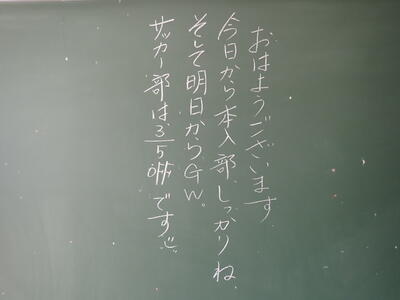 おはようございます
今日から本入部。しっかりね、
そして明日からGW。
サッカー部は3/5 offです